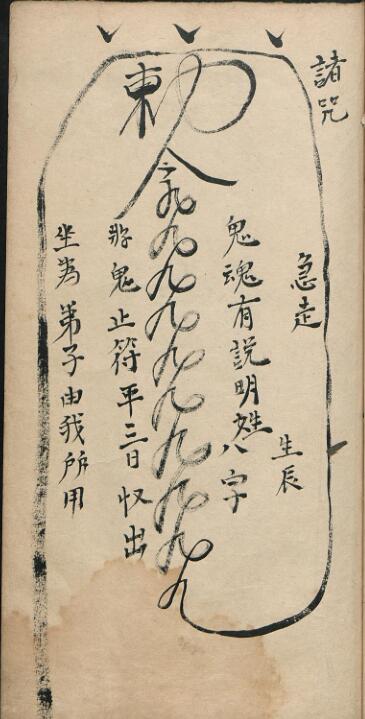 諸咒
急走
生辰
鬼魂有説明姓八字
敕令
鬼止符平三日收出
坐為弟子由我所用